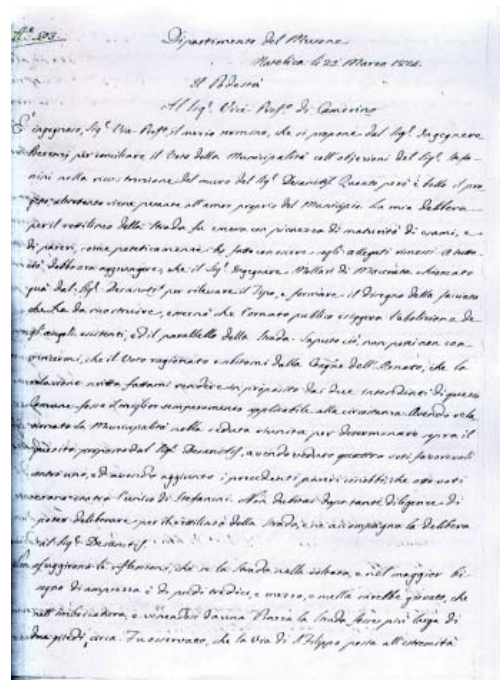 N.° 503.
Dipartimento del Musone
Matelica li 23 Marzo 1814.
Il Podestà
Al Sig.r Vice-Pref.o di Camerino
È ingegnoso, Sig.r Vice-Pref.o, il mezzo termine, che si propone dal Sig.r Ingegnere
per conciliare il Voto della Municipalità coll'objezioni del Sig.r Stefa-
nini nella ricostruzione del muro del Sig.r Desantis. Quanto però è bello il pro-
getto, altrettanto viene penante all'amor proprio del Municipio. La mia delibera
per il rettilineo della Strada fu emessa con pienezza di maturità di esami, e
di pareri, come ho fatto conoscere negli allegati rimessi. A tutto
ciò debbo ora aggiungere, che il Sig.r Ingegnere Mollari di Macerata chiamato
quà dal Sig.r Desantis per rilevare il Tipo, e formare il disegno della facciata
che ha da ricostruire, esternò che l'ornato pubblico esigeva l'abolizione de-
gli angoli esistenti, ed il parallello della Strada. Saputo ciò, non potei non con-
vincermi, che il Voto ragionato della Com.ne dell'Ornato, che la
relazione scritta fattami rendere in proposito dai due intendenti di questa
Comune fosse il miglior temperamento applicabile alla circostanza. Avendo
la Municipalità nella seduta riunita per determinare sopra il
quesito proposto dal Sig.r Desantis, avendo veduto quattro voti favorevoli
contro uno, ed avendo aggiunto i precedenti pareri che otto voti
erano contro l'unico di Stefanini. Non dubitai dopo tante diligenze di
poter deliberare per il rettilineo della Strada, e ne accompagnai la delibera
al Sig.r Desantis.
Non sfuggirono le riflessioni, che se la Strada nella voltata, e nel maggior bi-
sogno di ampiezza è di piedi tredici, e mezzo, e nulla sarebbe giovato, che
nell'imboccatura, e venendosi da una Piazza la Strada fosse più larga di
due piedi, circa. Fu osservato, che la Via di S. Filippo posta all'estremità